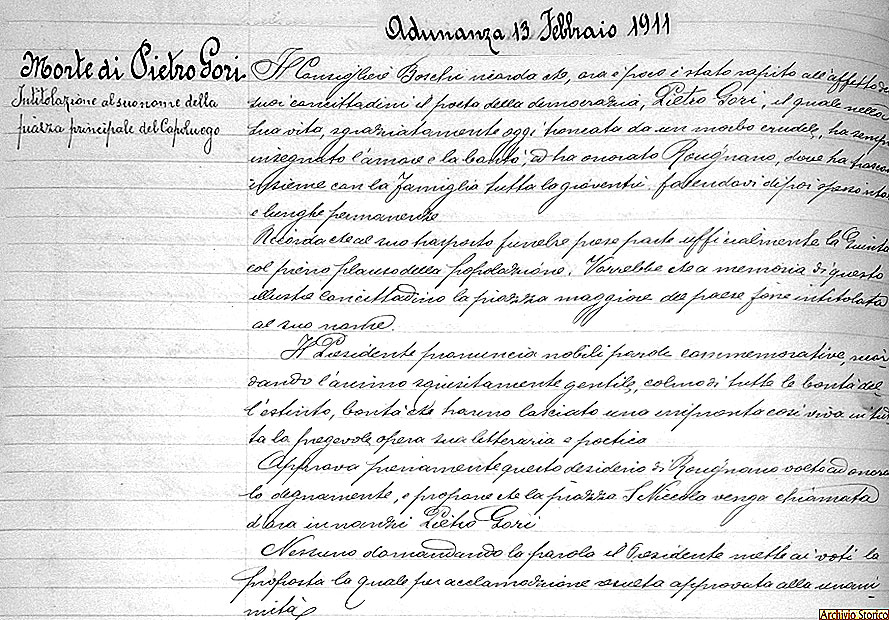 Adunanza 13 Febbraio 1911
Morte di Pietro Gori
Intitolazione al suo nome della
piazza principale del Capoluogo
Il Consigliere Boschi ricorda che, ora è poco è stato rapito all'affetto dei
suoi concittadini il poeta della democrazia, Pietro Gori, il quale nella
sua vita, sgraziatamente oggi troncata da un morbo crudele, ha sempre
insegnato l'amore e la bontà, ed ha onorato Rosignano, dove ha
insieme con la famiglia tutta la gioventù, facendovi di poi spesso
e lunghe permanenze
Ricorda che al suo trasporto funebre prese parte ufficialmente la Giunta
col pieno plauso della popolazione. Vorrebbe che a memoria di questo
illustre concittadino la piazza maggiore del paese fosse intitolata
al suo nome.
Il Presidente pronuncia nobili parole commemorative, ricor-
dando l'animo squisitamente gentile, colmo di tutte le bontà del-
l'estinto, bontà che hanno lasciato una impronta così viva in tut-
ta la pregevole opera sua letteraria e poetica
Approva pienamente questo desiderio di Rosignano volto ad onorar-
lo degnamente, e propone che la piazza S. Niccola venga chiamata
d'ora innanzi Pietro Gori
Nessuno domandando la parola il Presidente mette ai voti la
proposta la quale per acclamazione resulta approvata alla unani-
mità
Archivio Storico